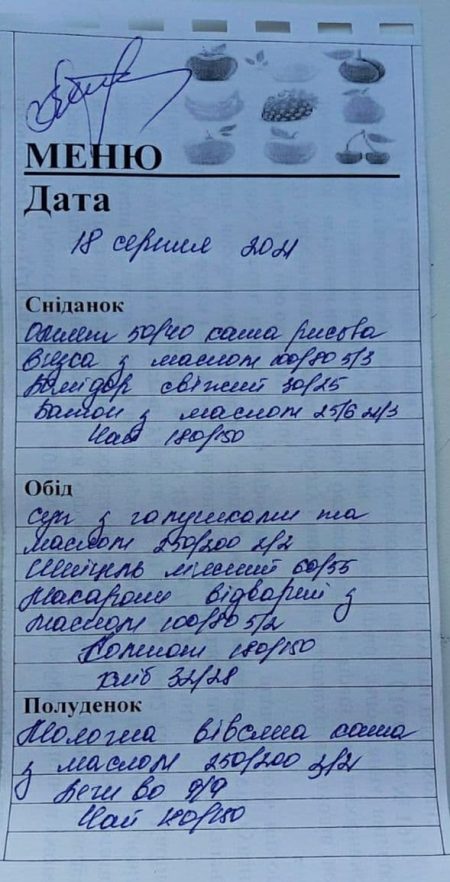 МЕНЮ
Дата
18 серпня 2021
Сніданок
Омлет 50/40 каша рисова
в'язка з маслом 100/80 5/3
Помідор свіжий 30/25
Батон з маслом 25/6 21/3
Чай 180/150
Обід
Суп з галушками та
маслом 250/200 2/2
Шніцель м'ясний 60/55
Макарони відварені з
маслом 100/80 5/2
Компот 180/150
хліб 32/28
Полуденок
Молочна вівсяна каша
з маслом 250/200 3/2
Печиво 9/9
Чай 180/150